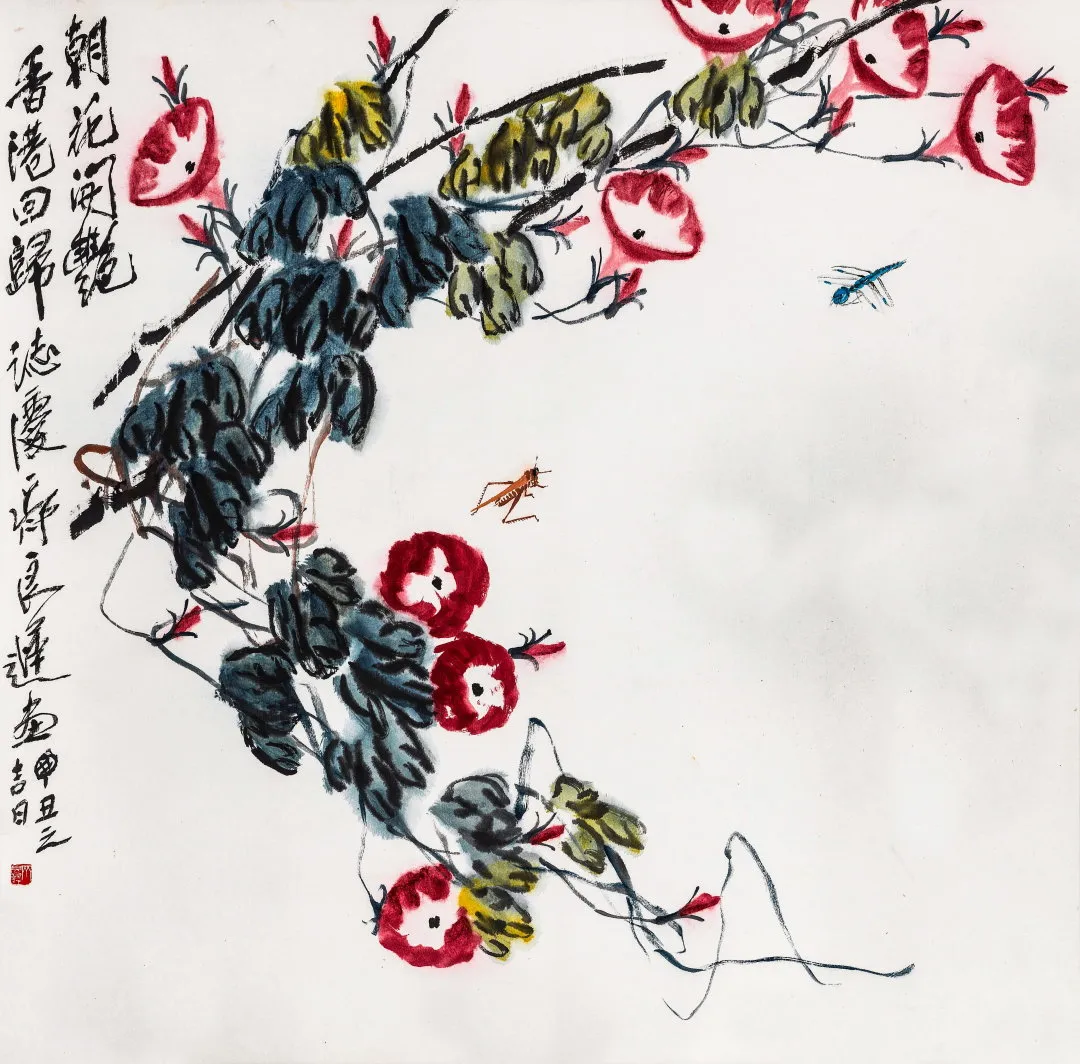 朝花開艷
香港回歸誌慶齊良遲畫
丑之
吉日